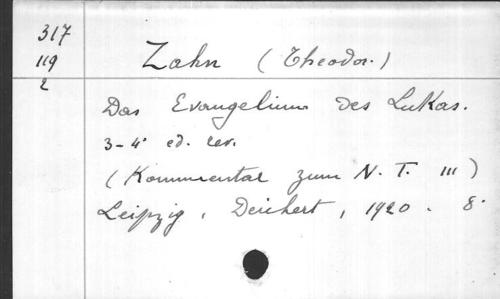 317
119
2
Zahn (Theodor.)
Das Evangelium des Lukas.
3-4° ed. rev.
(Kommentar zum N. T. III)
Leipzig, Deichert, 1920. 8°